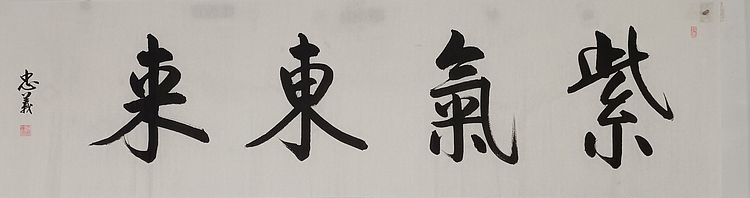 紫氣東来
忠義